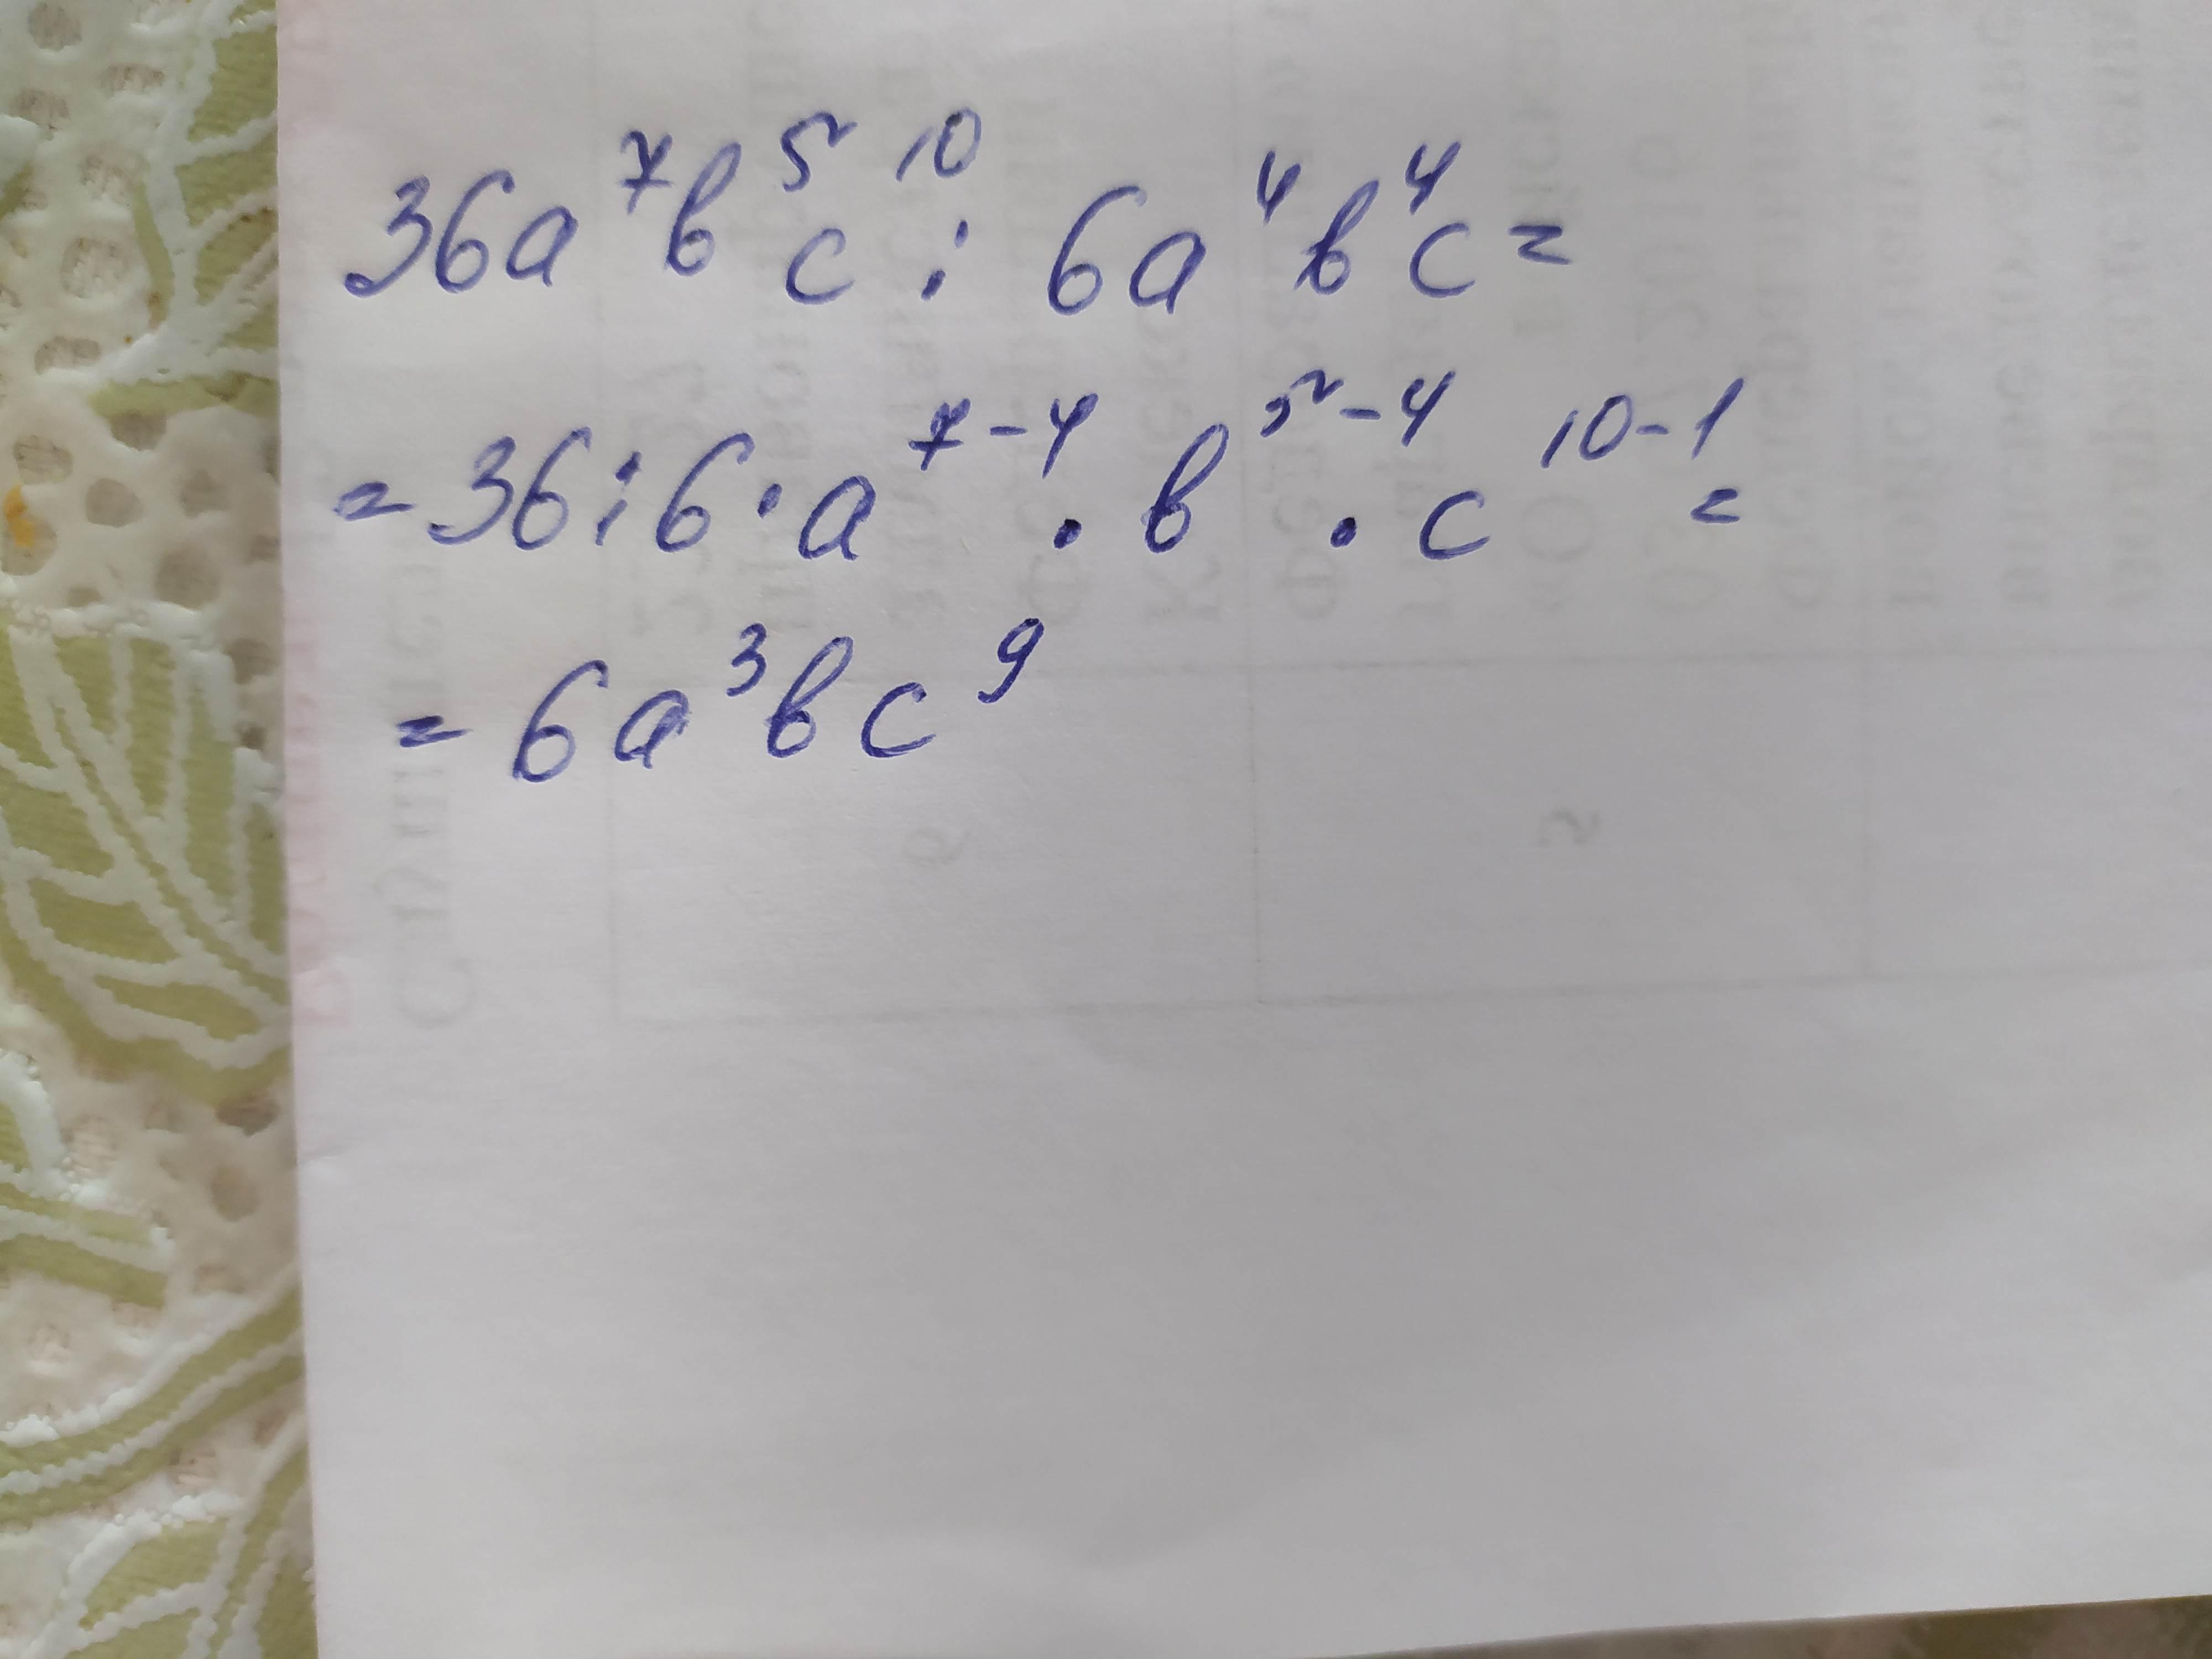 36a⁷b⁵c¹⁰ : 6a⁴b⁴c =
= 36 : 6 · a⁷⁻⁴ · b⁵⁻⁴ · c¹⁰⁻¹ =
= 6a³bc⁹